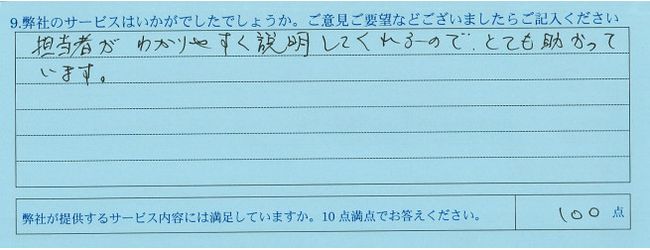 9.弊社のサービスはいかがでしたでしょうか。ご意見ご要望などございましたらご記入ください
担当者が わかりやすく説明してくれるので、とても助かって
います。
弊社が提供するサービス内容には満足していますか。10点満点でお答えください。 100 点